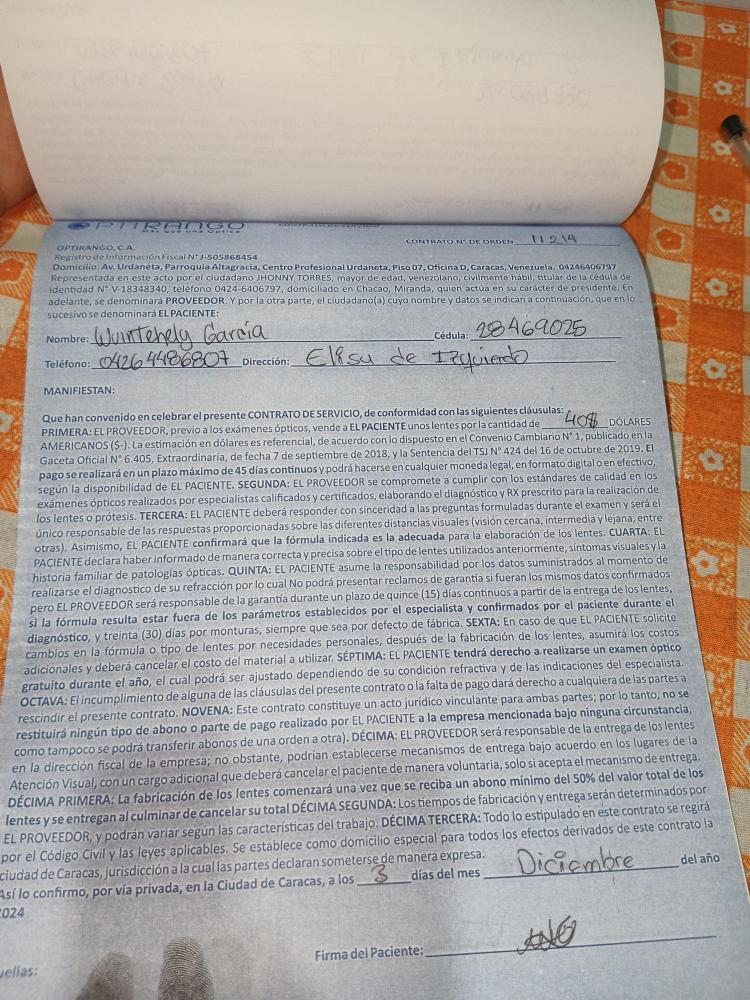 OPTIRANGO
Más que una Óptica
CONTRATO DE SERVICIO
CONTRATO N° DE ORDEN 11214
OPTIRANGO, C.A.
Registro de Información Fiscal N° J-505868454
Domicilio: Av. Urdaneta, Parroquia Altagracia, Centro Profesional Urdaneta, Piso 07, Oficina D, Caracas, Venezuela. 04246406797
Representada en este acto por el ciudadano JHONNY TORRES, mayor de edad, venezolano, civilmente hábil, titular de la cédula de
identidad N° V-18348340, teléfono 0424-6406797, domiciliado en Chacao, Miranda, quien actúa en su carácter de presidente. En
adelante, se denominará PROVEEDOR. Y por la otra parte, el ciudadano(a) cuyo nombre y datos se indican a continuación, que en lo
sucesivo se denominará EL PACIENTE:
Nombre: Wuintehely García Cédula: 28469025
Teléfono: 04264486807 Dirección: Elisa de Izquierdo
MANIFIESTAN:
Que han convenido en celebrar el presente CONTRATO DE SERVICIO, de conformidad con las siguientes cláusulas:
PRIMERA: EL PROVEEDOR, previo a los exámenes ópticos, vende a EL PACIENTE unos lentes por la cantidad de 40$ DÓLARES
AMERICANOS ($-). La estimación en dólares es referencial, de acuerdo con lo dispuesto en el Convenio Cambiario N° 1, publicado en la
Gaceta Oficial N° 6.405, Extraordinaria, de fecha 7 de septiembre de 2018, y la Sentencia del TSJ N° 424 del 16 de octubre de 2019. El
pago se realizará en un plazo máximo de 45 días continuos y podrá hacerse en cualquier moneda legal, en formato digital o en efectivo,
según la disponibilidad de EL PACIENTE. SEGUNDA: EL PROVEEDOR se compromete a cumplir con los estándares de calidad en los
exámenes ópticos realizados por especialistas calificados y certificados, elaborando el diagnóstico y RX prescrito para la realización de
los lentes o prótesis. TERCERA: EL PACIENTE deberá responder con sinceridad a las preguntas formuladas durante el examen y será el
único responsable de las respuestas proporcionadas sobre las diferentes distancias visuales (visión cercana, intermedia y lejana, entre
otras). Asimismo, EL PACIENTE confirmará que la fórmula indicada es la adecuada para la elaboración de los lentes. CUARTA: EL
PACIENTE declara haber informado de manera correcta y precisa sobre el tipo de lentes utilizados anteriormente, síntomas visuales y la
historia familiar de patologías ópticas. QUINTA: EL PACIENTE asume la responsabilidad por los datos suministrados al momento de
realizarse el diagnostico de su refracción por lo cual No podrá presentar reclamos de garantía si fueran los mismos datos confirmados
pero EL PROVEEDOR será responsable de la garantía durante un plazo de quince (15) días continuos a partir de la entrega de los lentes,
si la fórmula resulta estar fuera de los parámetros establecidos por el especialista y confirmados por el paciente durante el
diagnóstico, y treinta (30) días por monturas, siempre que sea por defecto de fábrica. SEXTA: En caso de que EL PACIENTE solicite
cambios en la fórmula o tipo de lentes por necesidades personales, después de la fabricación de los lentes, asumirá los costos
adicionales y deberá cancelar el costo del material a utilizar. SÉPTIMA: EL PACIENTE tendrá derecho a realizarse un examen óptico
gratuito durante el año, el cual podrá ser ajustado dependiendo de su condición refractiva y de las indicaciones del especialista.
OCTAVA: El incumplimiento de alguna de las cláusulas del presente contrato o la falta de pago dará derecho a cualquiera de las partes a
rescindir el presente contrato. NOVENA: Este contrato constituye un acto jurídico vinculante para ambas partes; por lo tanto, no se
restituirá ningún tipo de abono o parte de pago realizado por EL PACIENTE a la empresa mencionada bajo ninguna circunstancia,
como tampoco se podrá transferir abonos de una orden a otra). DÉCIMA: EL PROVEEDOR será responsable de la entrega de los lentes
en la dirección fiscal de la empresa; no obstante, podrían establecerse mecanismos de entrega bajo acuerdo en los lugares de la
Atención Visual, con un cargo adicional que deberá cancelar el paciente de manera voluntaria, solo si acepta el mecanismo de entrega.
DÉCIMA PRIMERA: La fabricación de los lentes comenzará una vez que se reciba un abono mínimo del 50% del valor total de los
lentes y se entregan al culminar de cancelar su total DÉCIMA SEGUNDA: Los tiempos de fabricación y entrega serán determinados por
EL PROVEEDOR, y podrán variar según las características del trabajo. DÉCIMA TERCERA: Todo lo estipulado en este contrato se regirá
por el Código Civil y las leyes aplicables. Se establece como domicilio especial para todos los efectos derivados de este contrato la
ciudad de Caracas, jurisdicción a la cual las partes declaran someterse de manera expresa.
Así lo confirmo, por vía privada, en la Ciudad de Caracas, a los 3 días del mes Diciembre del año
2024
Firma del Paciente:
uellas: